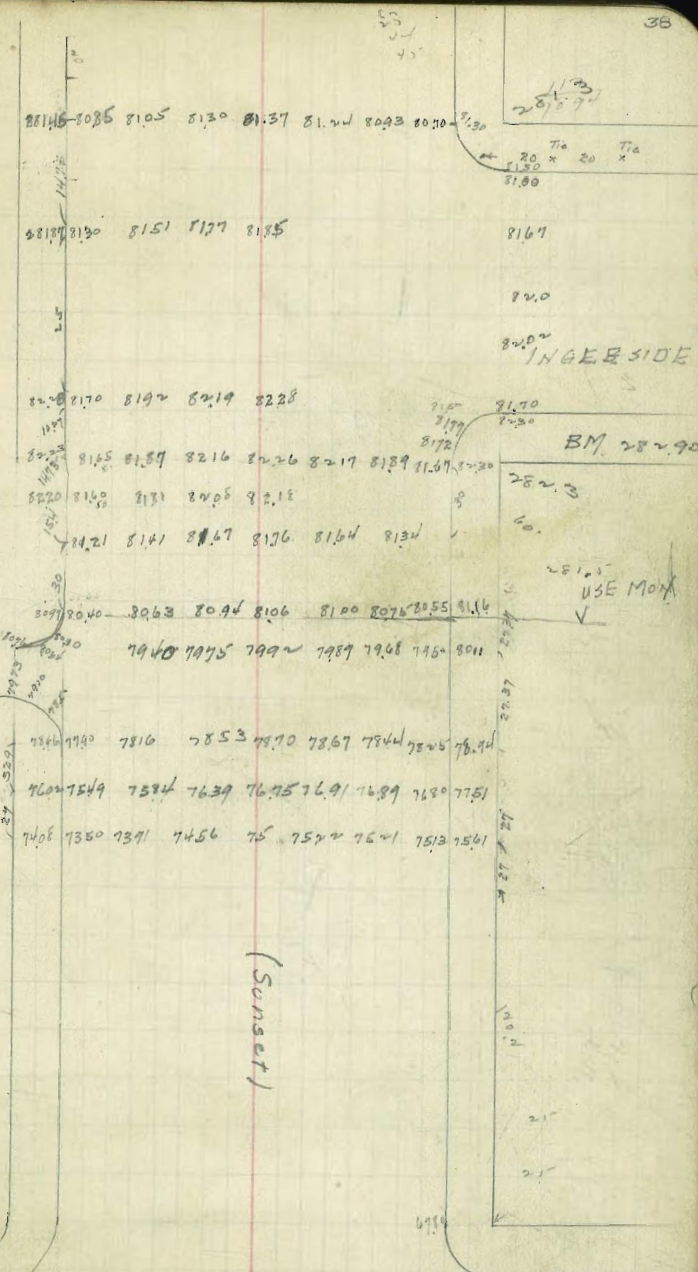 38
45
113
20 x Tie 20 x Tie
28146 8085 8105 8130 81.37 81.24 8093 8070 81.30
8130
8100
14.78
28187 8130 8151 8177 8185 8167
82.0
25
82.02
INGEESIDE
8228 8170 8192 8219 8228 81.70
8230
BM 282.90
8165 8187 8216 8226 8217 8189 8167 8230
8172
282.3
8220 8160 8181 8208 8218 30
60.
8121 8141 8167 8176 8164 8134
281.5
USE MON
30
8097 8040 8063 8094 8106 8100 8075 8055 8116
7940 7975 7992 7989 7968 795 8011
27.37
7973
7846 7790 7816 7853 7870 7867 7844 7825 78.94
329
7602 7549 7584 7639 7675 7691 7689 7680 7751
24
7408 7350 7391 7456 75 7522 7521 7513 7561
24 24
(Sunset)
202
25
25